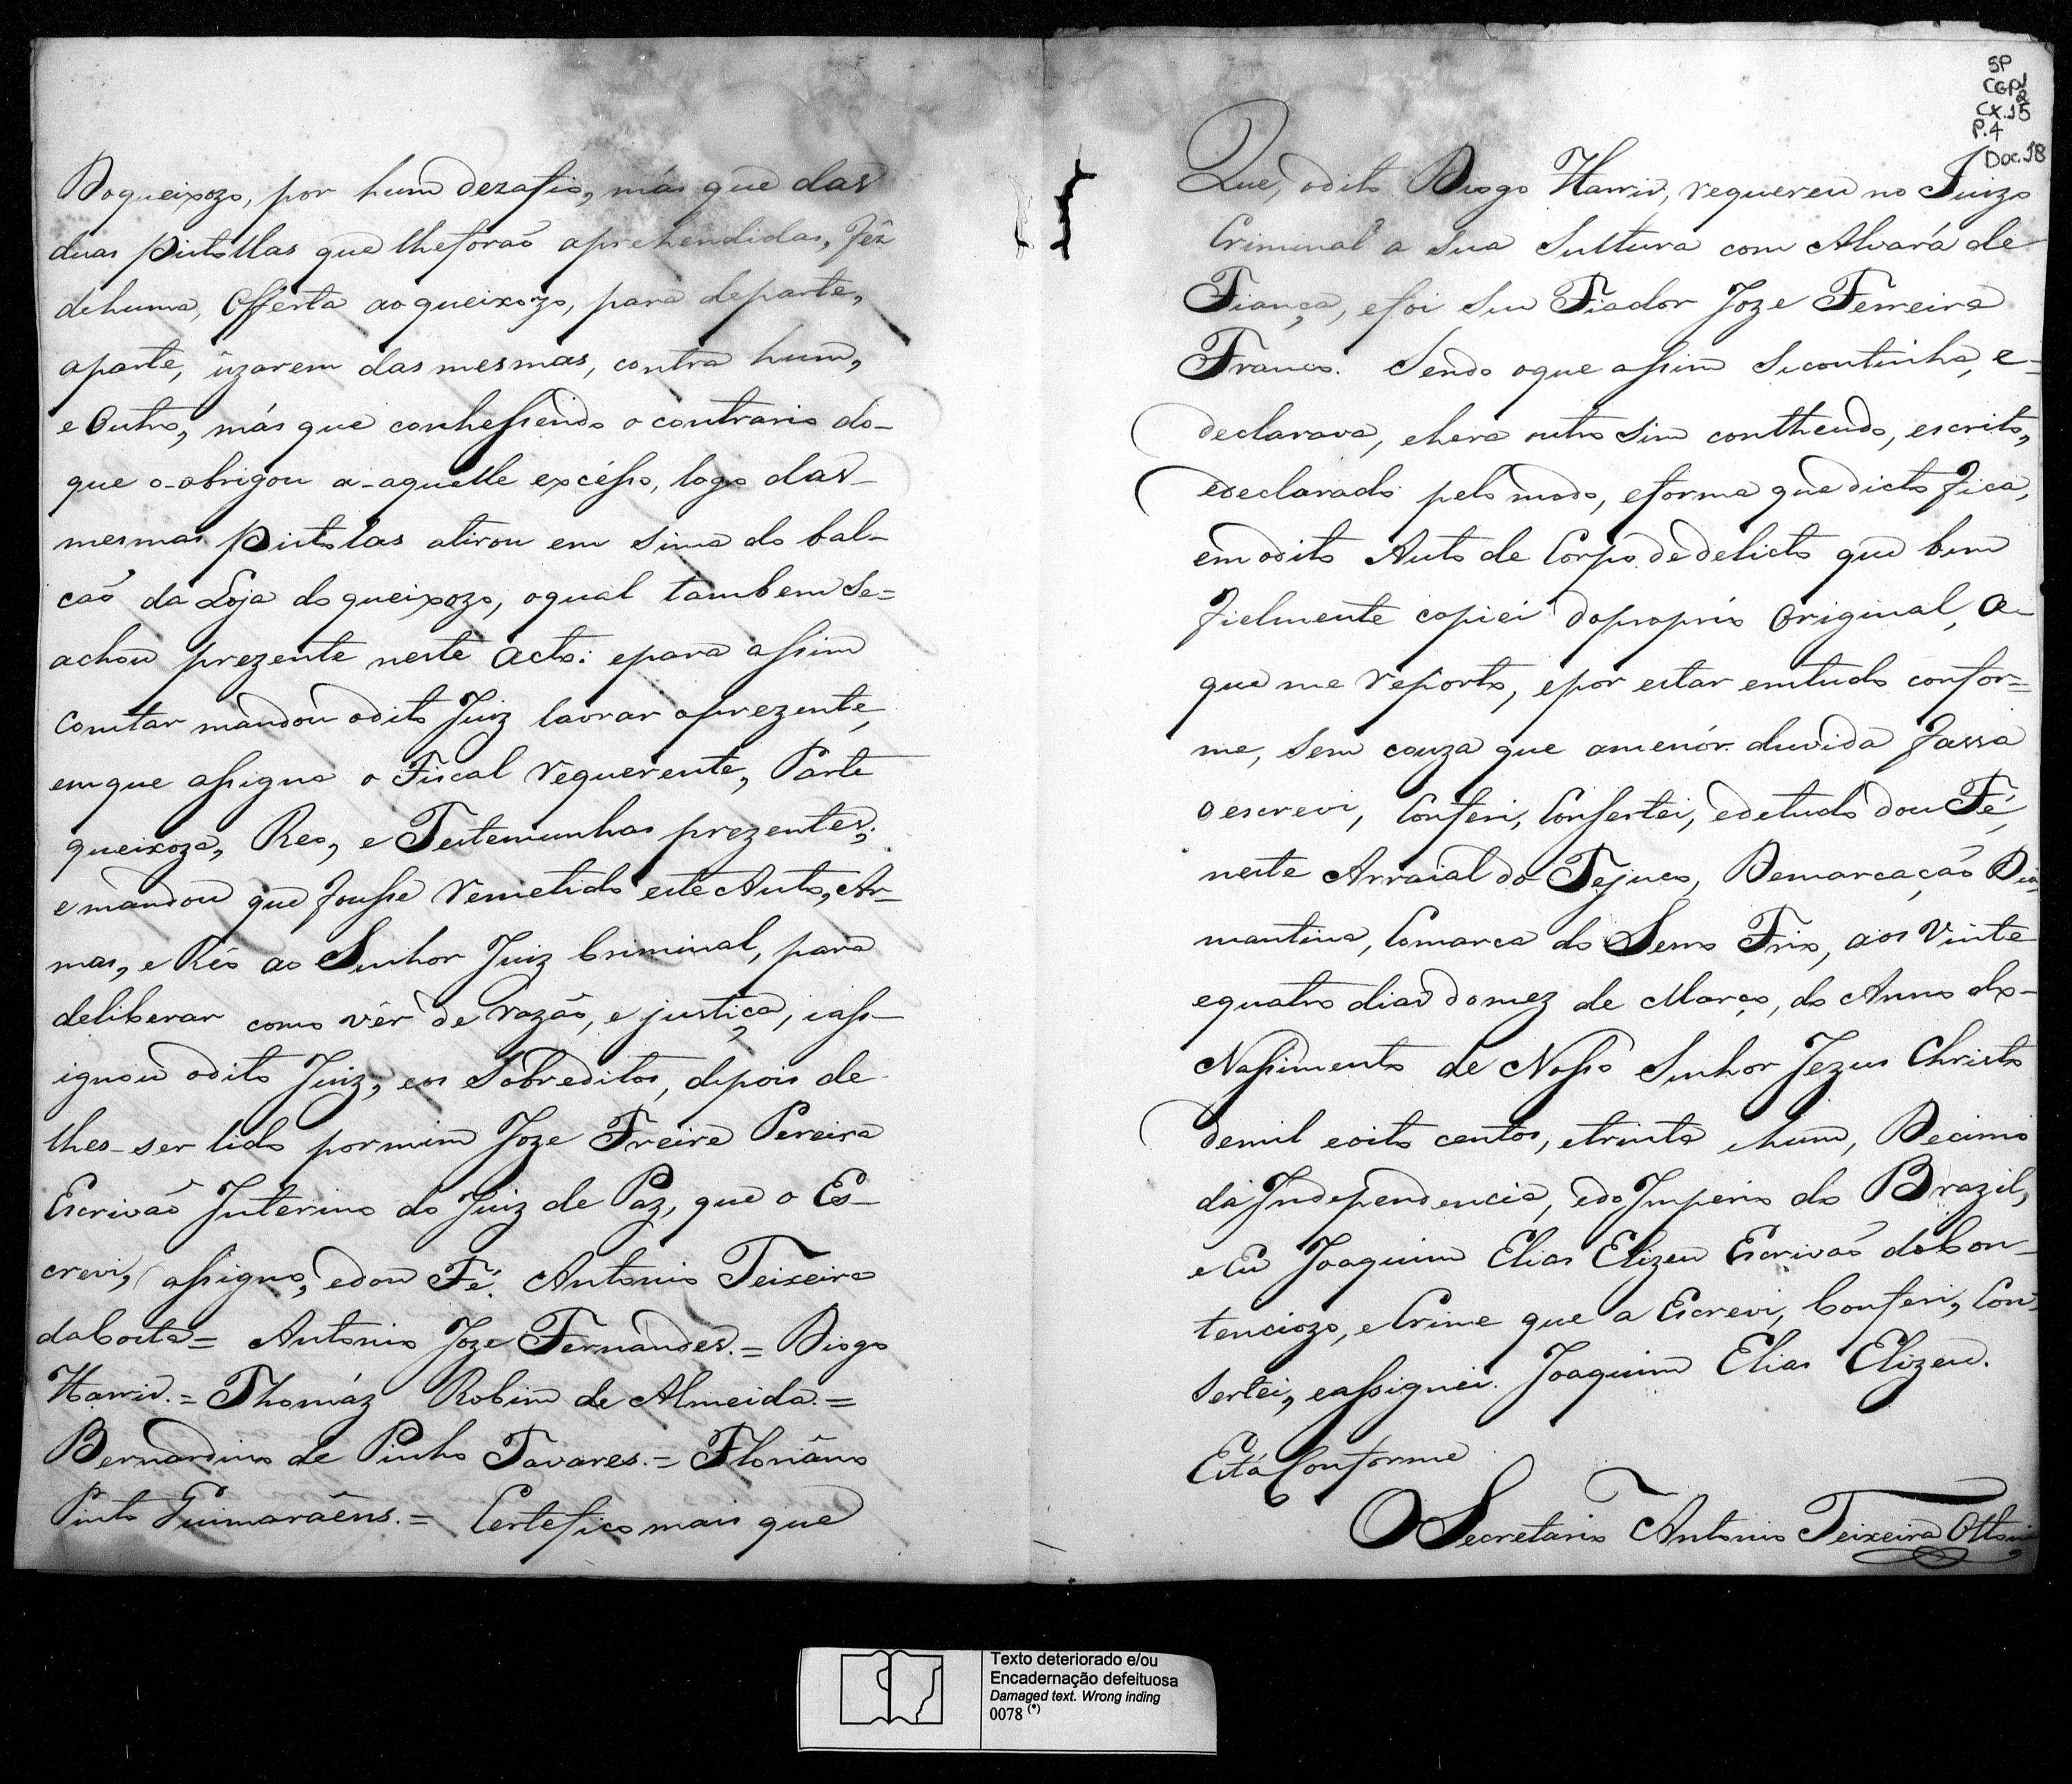 Doqueixozo, por hum dezafio, más que das
duas pistollas que lheforaõ aprehendidas, fêz
dehuma, Offerta aoqueixozo, para departe,
aparte, ûzarem das mesmas, contra hum,
e Outro, más que conhessendo o contrario do-
que o-obrigou a-aquelle excésso, logo das-
mesmas pistolas atirou em sima do bal-
caõ da Loja do queixozo, oqual tambem se=
achou prezente neste Acto: epara assim
Constar mandou odito Juiz lavrar oprezente,
emque assigna o Fiscal requerente, Parte
queixoza, Reo, e Testemunhas prezentes;
e mandou que fousse remetido este Auto, Ar-
mas, e Réo ao Senhor Juiz Criminal, para
deliberar como vêr de razaõ, e justiça, iass-
ignou odito Juiz, eos Sobreditos, depois de
lhes-ser lido pormim Joze Freire Pereira
Escrivaõ Interino do Juiz de Paz, que o Es-
crevi, assigno, edou Fé. Antonio Teixeira
daCosta= Antonio Joze Fernandes.= Diogo
Harris.= Thomáz Robim de Almeida.=
Bernardino de Pinho Tavares.= Floriâno
Pinto Guimarâens.= Certefico mais que
SP
CGP1
2
CX.15
P.4
Doc.18
Que, odito Diogo Harris, requereu no Juizo
Criminal a sua Sultura com Alvará de
Fiança, efoi seu Fiador Joze Ferreira
Franco. Sendo oque assim secontinha, e-
declarava, ehera outro sim contheudo, escrito,
edeclarado pelo modo, eforma que dicto fica,
emodito Auto de Corpo dedelicto que bem
fielmente copiei doproprio Original, a-
que me reporto, epor estar emtudo confor=
me, sem couza que amenór duvida fassa
o escrevi, Conferi, Consertei, edetudo dou Fé,
neste Arraial do Tejuco, Demarcaçaõ Dia
mantina, Comarca do Serro Frio, aos vinte
equatro dias domez de Março, do Anno do-
Nassimento de Nosso Senhor Jezus Christo
demil eoito centos, etrinta ehum, Decimo
da Independencia, edo Imperio do Brazil,
e Eu Joaquim Elias Elizeu Escrivaõ do Con-
tenciozo, e Crime que a Escrevi, Conferi, Con
sertei, eassignei. Joaquim Elias Elizeu.
Está Conforme
O Secretario Antonio Teixeira Ottoni
Texto deteriorado e/ou
Encadernação defeituosa
Damaged text. Wrong inding
0078 (*)